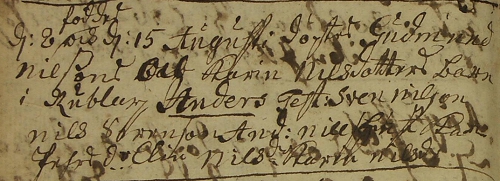 föddes
d: 2 och d: 15 Augusti döptes Gudmund
Nilsons och Karin Nilsdotters barn
i Rublarp Anders Test: Sven Nilson
Nils Svenson And: Nils
Pehrs Dr Elin Nilsd: Karin Nilsd: